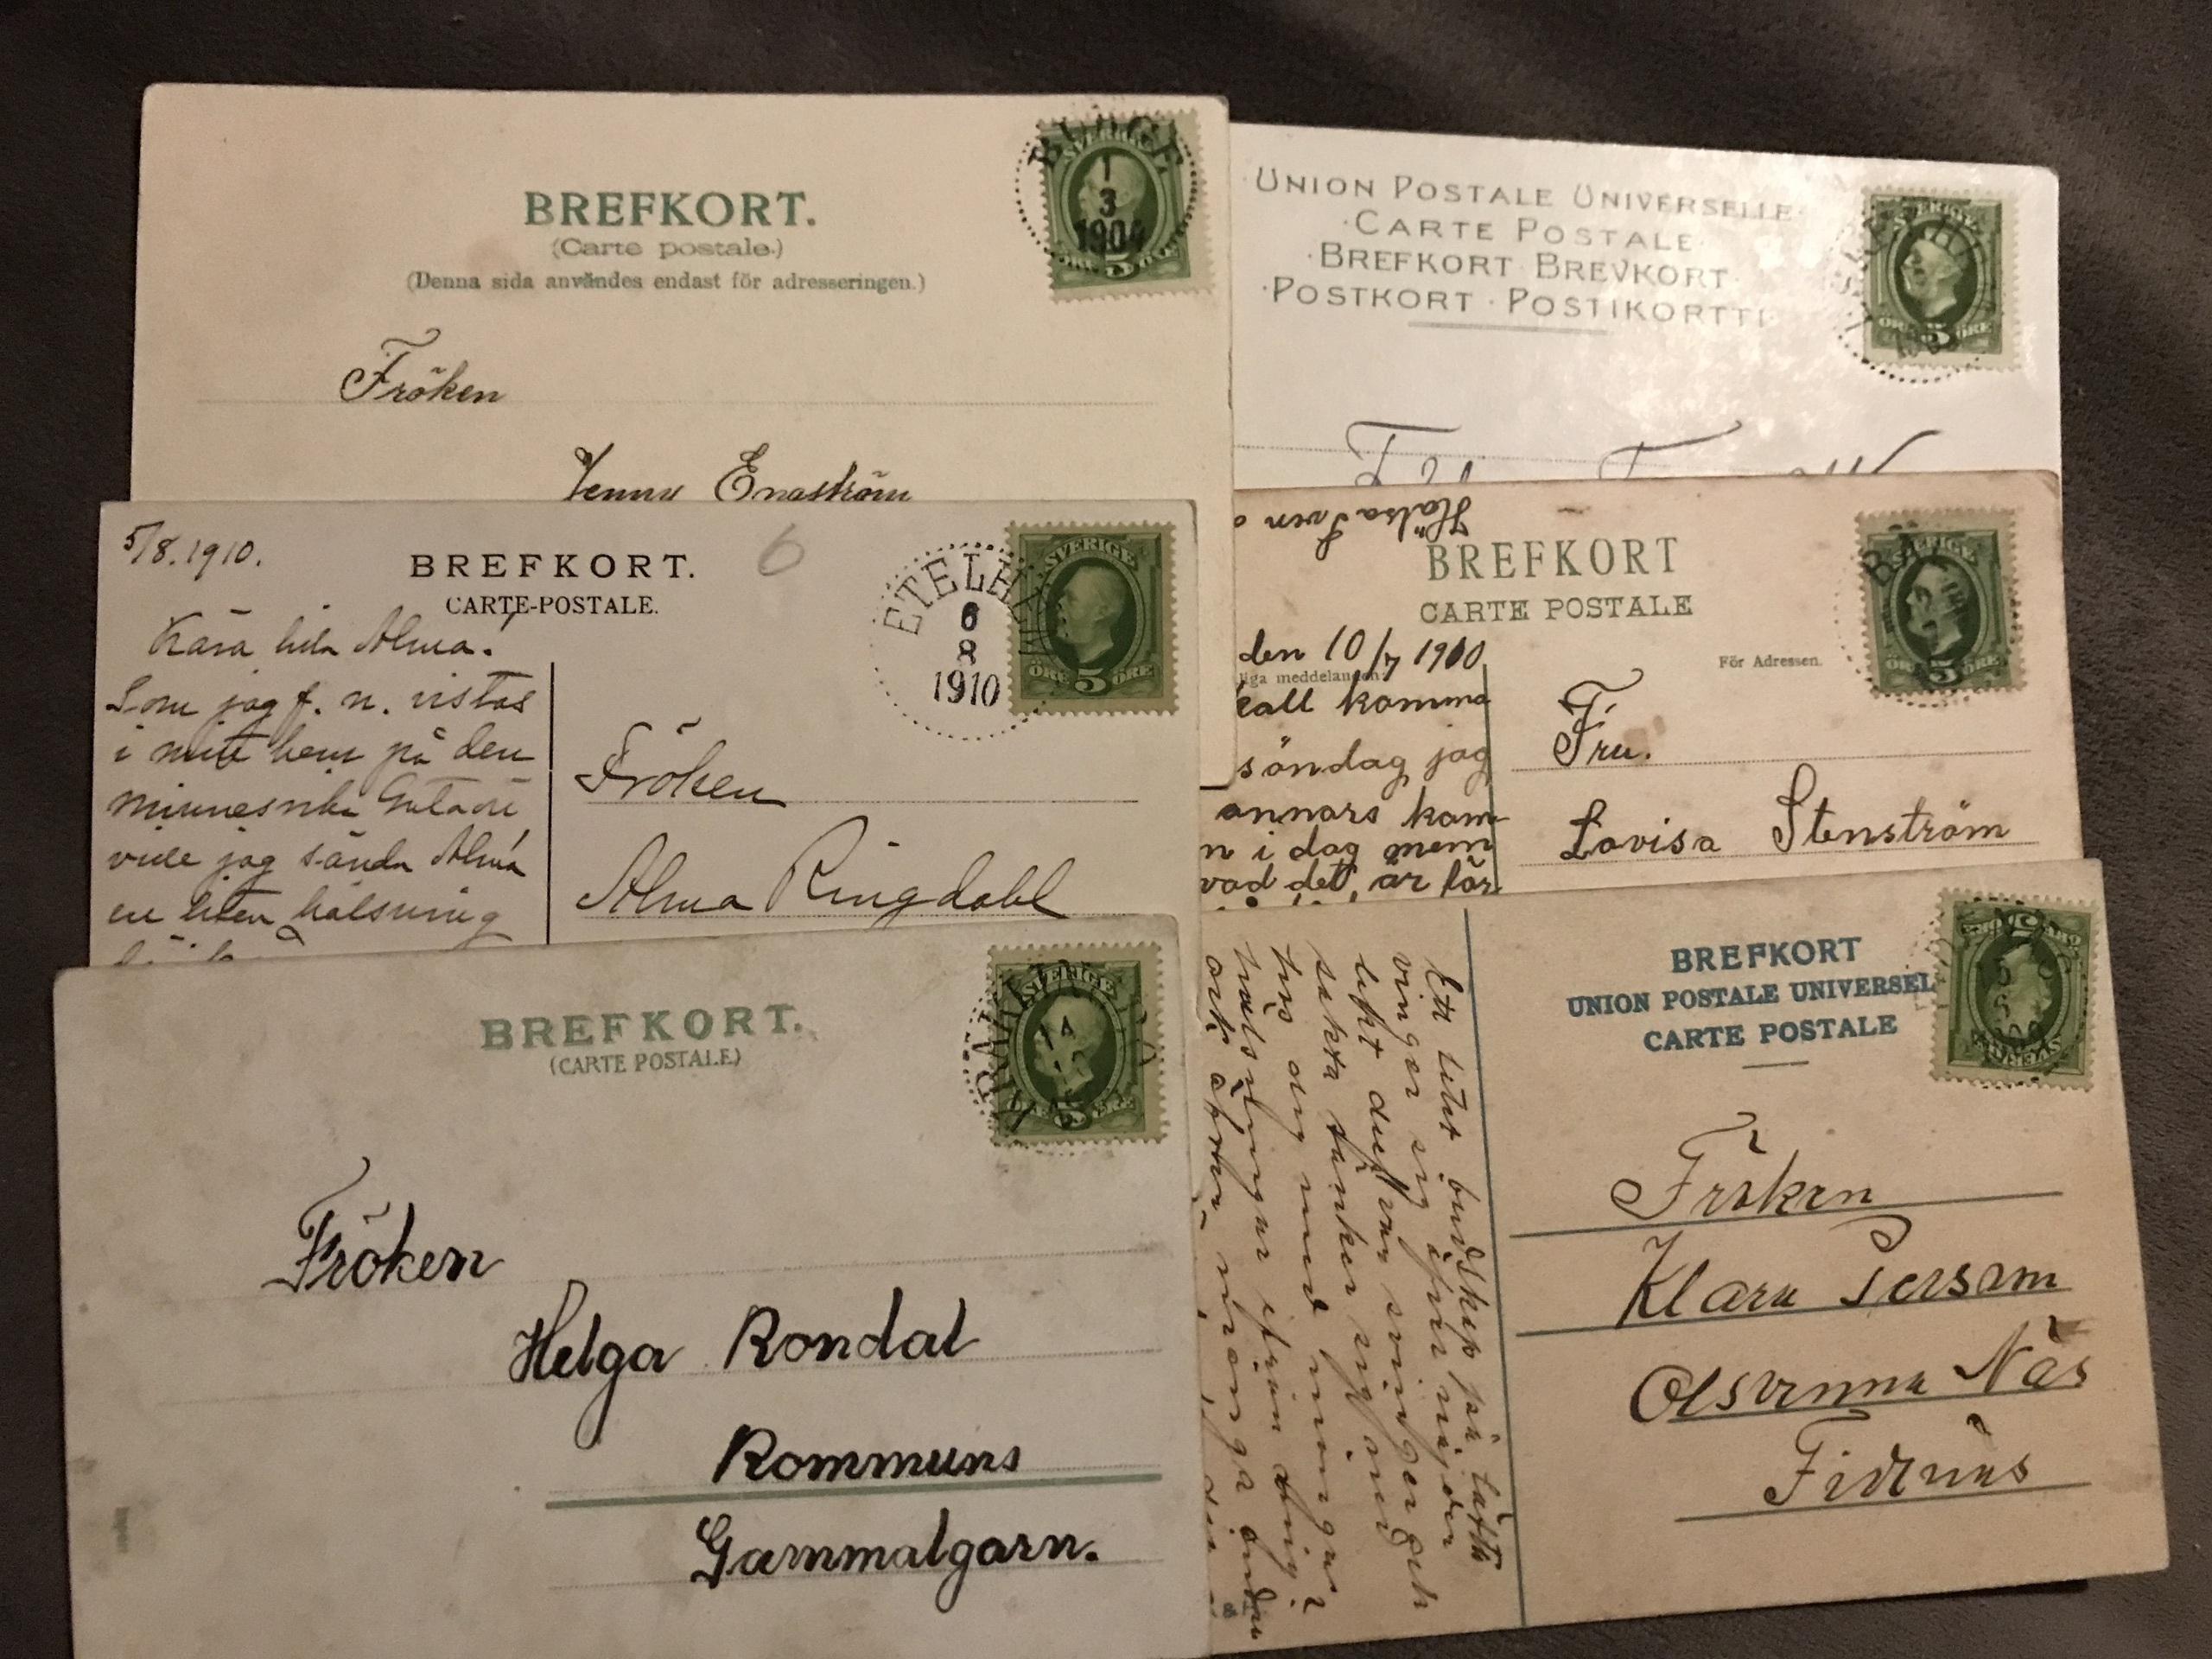 BREFKORT.
(Carte postale.)
(Denna sida användes endast för adresseringen.)
SVERIGE
1
3
1904
5
Fröken
Jenny Engström
UNION POSTALE UNIVERSELLE
CARTE POSTALE
BREFKORT · BREVKORT
POSTKORT · POSTIKORTTI
SVERIGE
ÖRE 5 ÖRE
5/8.1910.
BREFKORT.
CARTE-POSTALE.
6
ETELHEM
6
8
1910
SVERIGE
ÖRE 5 ÖRE
Kära lilla Alma!
Som jag f. n. vistas
i mitt hem på den
minnesrika Gutaön
ville jag sända Alma
en liten hälsning
Fröken
Alma Ringdahl
Hälsa Sven
BREFKORT
CARTE POSTALE
SVERIGE
ÖRE 5 ÖRE
den 10/7 1910
liga meddelanden.
För Adressen.
kall komma
söndag jag
annars kom
n i dag mem
vad det är för
Fru.
Lovisa Stenström
BREFKORT.
(CARTE POSTALE)
SVERIGE
14
ÖRE 5 ÖRE
Fröken
Helga Rondal
Rommuns
Gammalgarn.
BREFKORT
UNION POSTALE UNIVERSEL
CARTE POSTALE
SVERIGE
ÖRE 5 ÖRE
Ett litet budskap på lätta
vinger
sakta
hos dig med många
hälsningar ifrån
Fröken
Klara Persson
Olsvenna Näs
Fidenäs